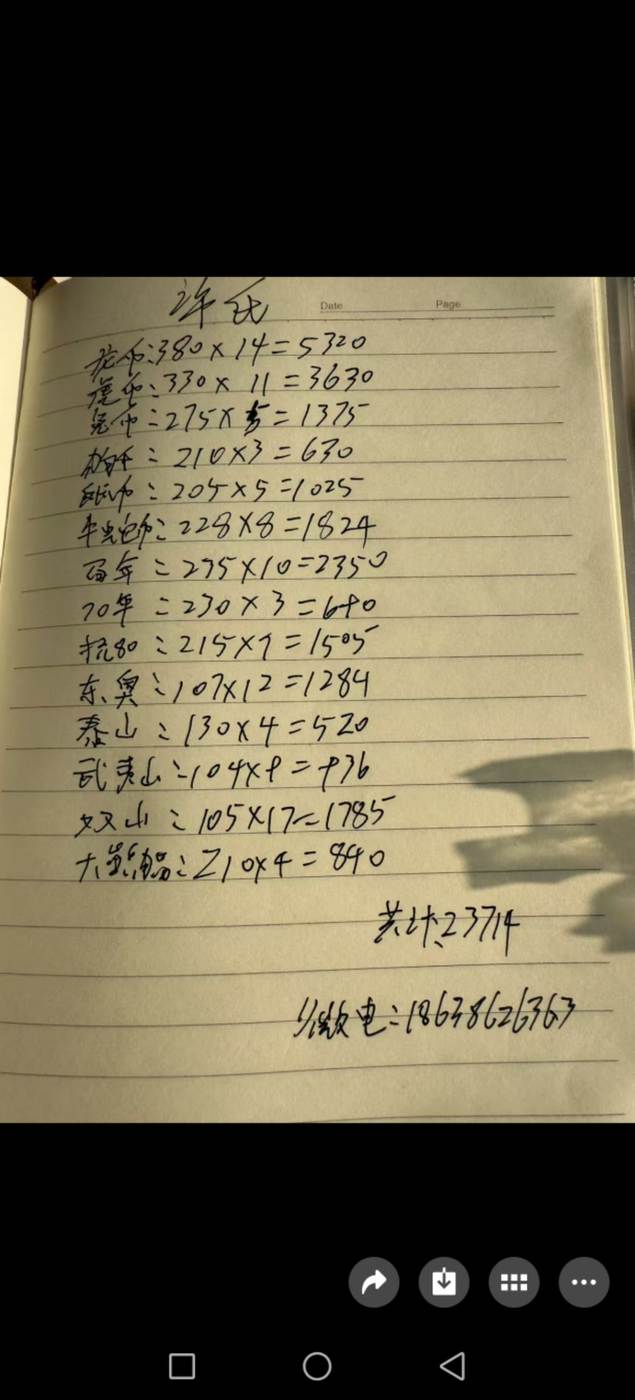 许氏
Date Page
龙币:380×14=5320
虎币:330×11=3630
兔币:275×5=1375
210×3=630
纸币:205×5=1025
228×8=1824
百年:235×10=2350
70年:230×3=690
抗80:215×7=1505
东奥:107×12=1284
泰山:130×4=520
武夷山:104×9=936
双山:105×17=1785
大熊猫:210×4=840
共计:23714
微电:18638626363